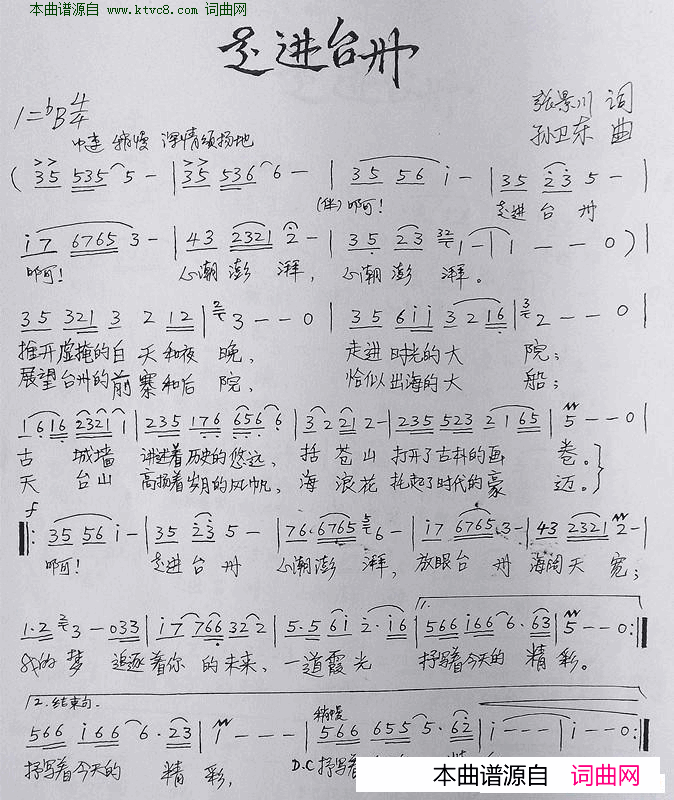 本曲谱源自 www.ktvc8.com 词曲网
走进台州
1=bB 4/4
张景川 词
中速 稍慢 深情颂扬地
孙卫东 曲
( 35 535 5 - | 35 536 6 - | 35 56 i - | 35 23 5 - |
(伴)啊! 走进台州
i7 6765 3 - | 43 2321 2 - | 35 23 32 1 - | 1 - - 0 ) |
啊! 心潮澎湃, 心潮澎湃。
35 321 3 2 12 | 2 3 - - 0 | 35 6ii 3 2 16 | 3 2 - - 0 |
推开虚掩的白天和夜晚, 走进时光的大院;
展望台州的前寨和后院, 恰似出海的大船;
1616 2321 1 | 235 176 656 6 | 3 2 21 2 - | 235 523 2 165 | 5 - - 0 |
古城墙 讲述着历史的悠远, 括苍山 打开了古朴的画卷。
天台山 高扬着岁月的风帆, 海浪花 托起了时代的豪迈。
f
35 56 i - | 35 23 5 - | 76·6765 5 6 - | i7 6765 3 - | 43 2321 2 - |
啊! 走进台州 心潮澎湃, 放眼台州 海阔天宽;
1. 
1·2 2 3 - 033 | i7 766 32 2 | 5·5 6i 2·i6 | 566 i66 6·63 | 5 - - 0 :|
我的梦 追逐着你的未来, 一道霞光 抒写着今天的精彩。
2.结束句. 稍慢
566 i66 6·23 | i - - - | 566 655 5·62 | i - - - | i - - 0 :|
抒写着今天的精彩, D.C 抒写着
本曲谱源自 词曲网